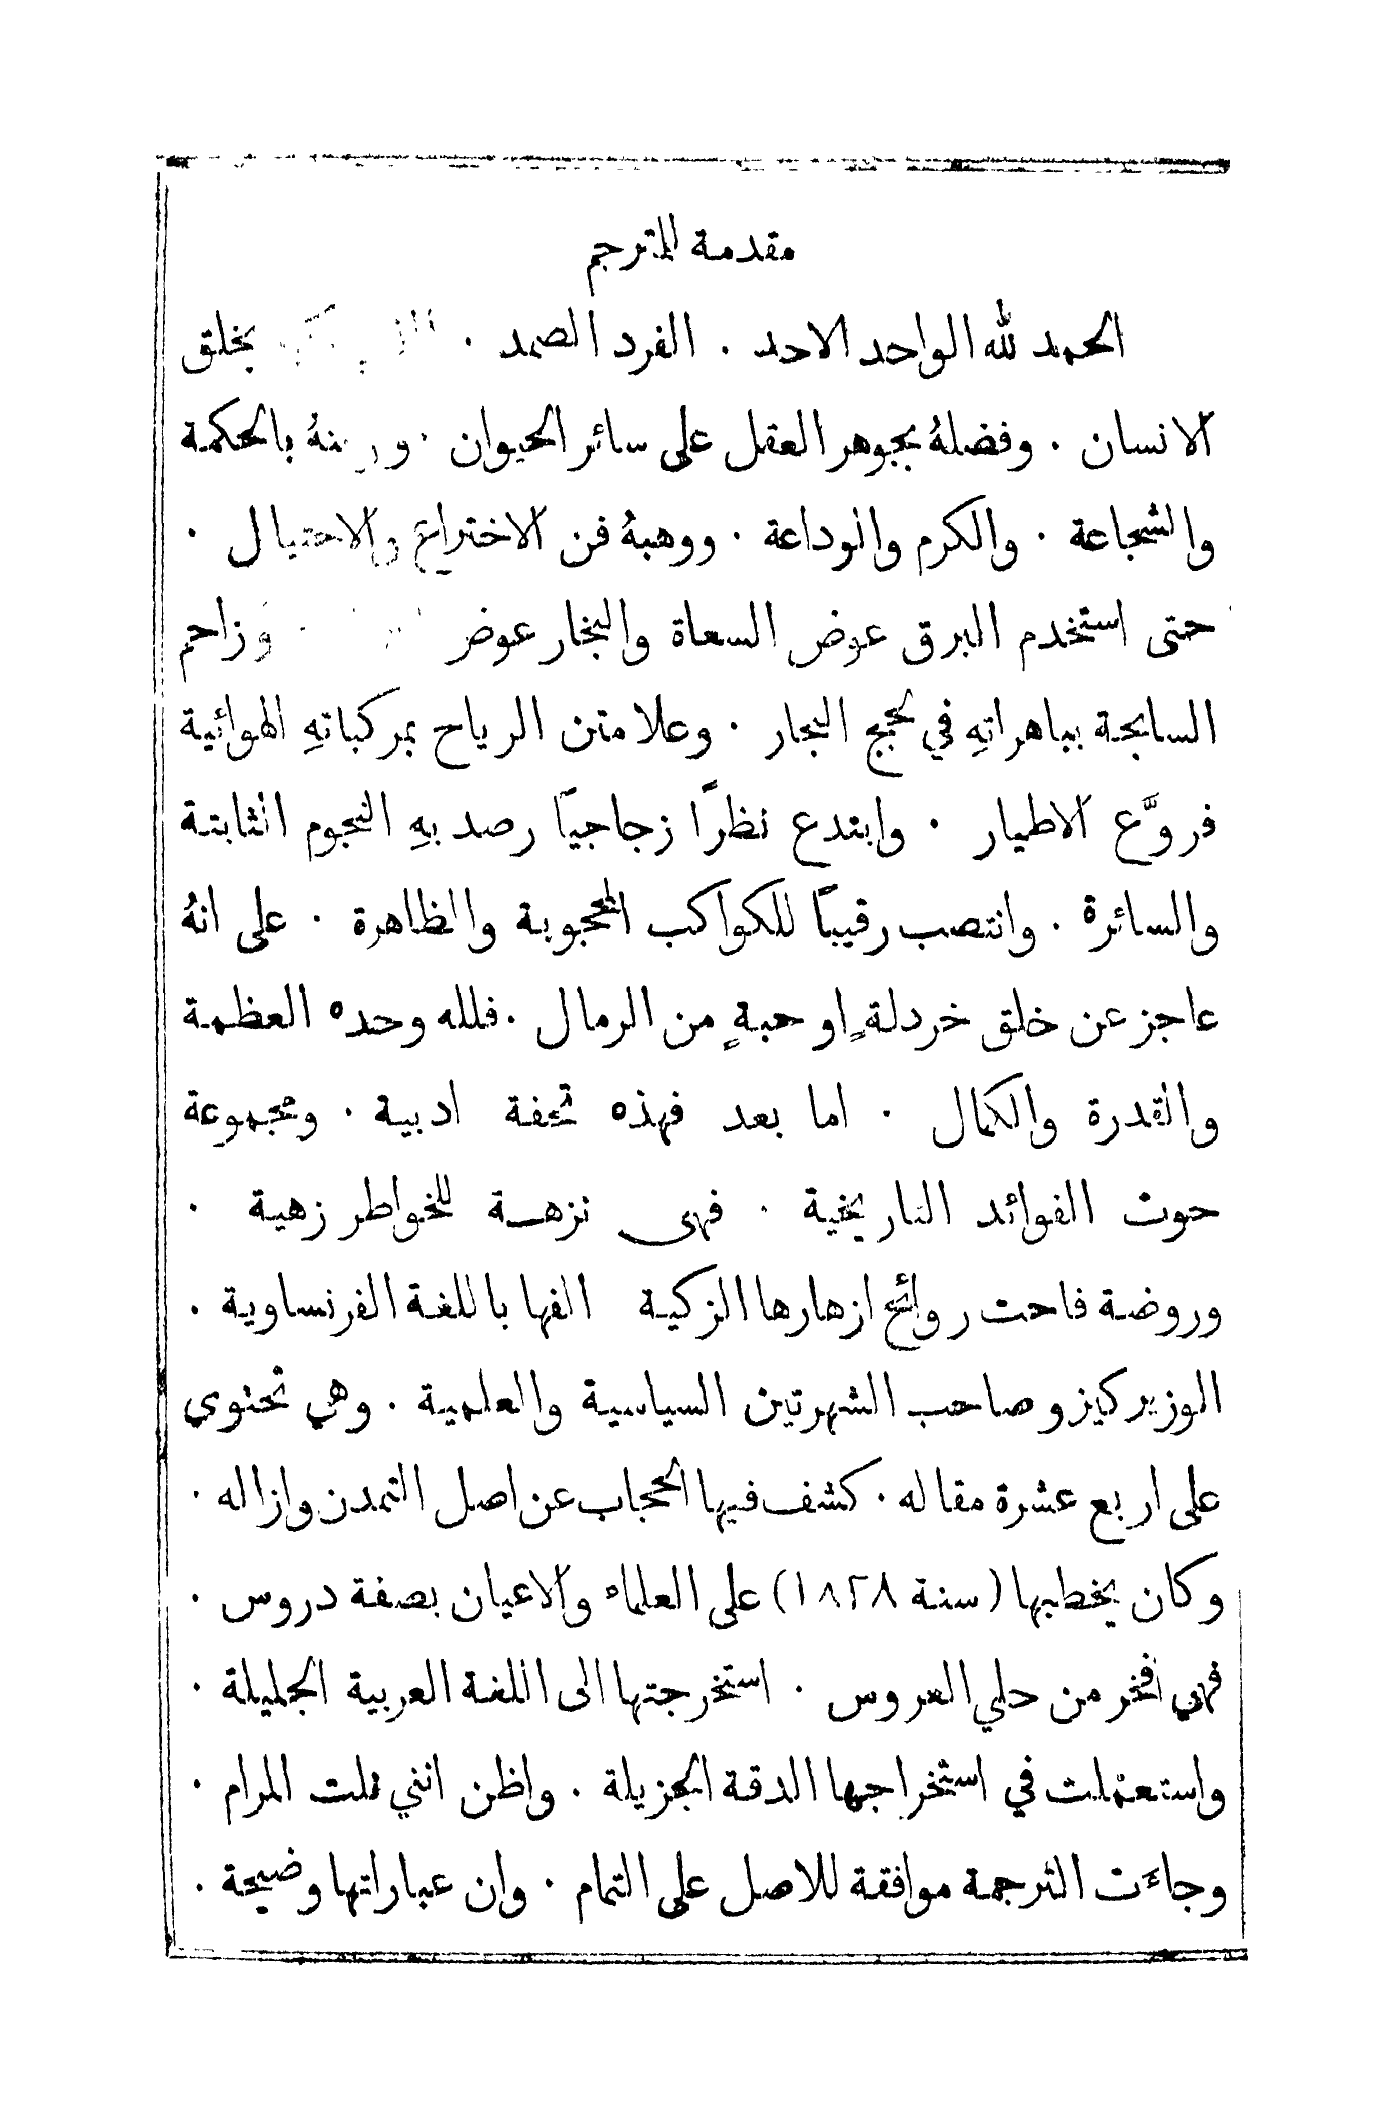 مقدمة المترجم
الحمد لله الواحد الاحد . الفرد الصمد . يخلق
الانسان . وفضلهُ بجوهر العقل على سائر الحيوان . بالحكمة
والشجاعة . والكرم والوداعة . ووهبهُ فن الاختراع والاحتيال .
حتى استخدم البرق عوض السعاة والبخار عوض . وزاحم
السابحة بباهراتهِ في لجج البحار . وعلا متن الرياح بمركباتهِ الهوائية
فروَّع الاطيار . وابتدع نظرًا زجاجيًا رصد بهِ النجوم الثابتة
والسائرة . وانتصب رقيبًا للكواكب المحجوبة والظاهرة . على انهُ
عاجز عن خلق خردلةٍ او حبةٍ من الرمال . فلله وحده العظمة
والقدرة والكمال . اما بعد فهذه تحفة ادبية . ومجموعة
حوت الفوائد التاريخية . فهى نزهة للخواطر زهية .
وروضة فاحت روائح ازهارها الزكية الفها باللغة الفرنساوية .
الوزير كيزو صاحب الشهرتين السياسية والعلمية . وهي تحتوي
على اربع عشرة مقاله . كشف فيها الحجاب عن اصل التمدن وازاله .
وكان يخطبها (سنة ١٨٢٨) على العلماء والاعيان بصفة دروس .
فهي افخر من حلي العروس . استخرجتها الى اللغة العربية الجليلة .
واستعملت في استخراجها الدقة الجزيلة . واظن انني نلت المرام .
وجاءَت الترجمة موافقة للاصل على التمام . وان عباراتها وضيحة .